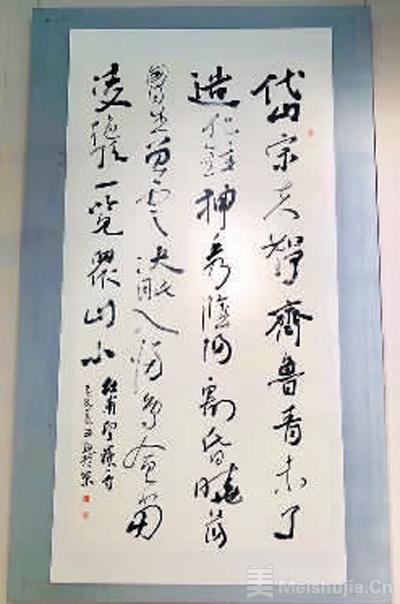 岱宗夫如何齊魯青未了
造化鍾神秀陰陽割昏曉蕩
胸生曾雲決眦入歸鳥會當
凌絕頂一覽眾山小
杜甫望嶽詩
美 Meishujia.Cn